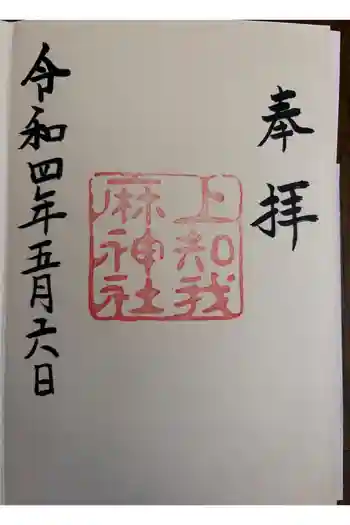 奉拝
上知我
麻神社
令和四年五月六日